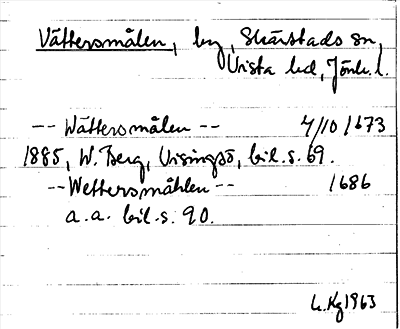 Vättersmålen, by, Skärstads sn,
Vista hd, Jönk. l.
-- Wättersmålen -- 4/10 1673
1885, W. Berg, Visingsö, bil. s. 69.
-- Wettersmåhlen -- 1686
a. a. bil. s. 90.
L. Kg 1963